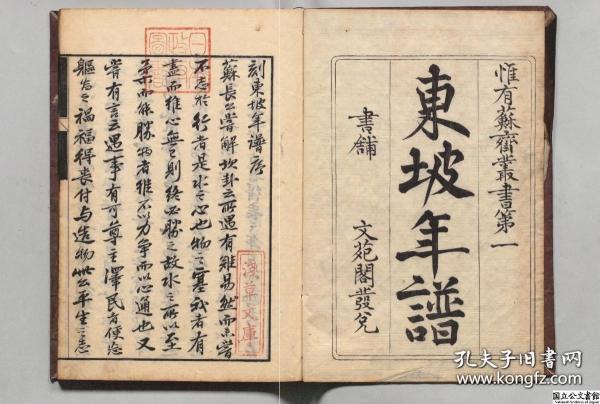 惟有蘇齋叢書第一
東坡年譜
書舖
文苑閣發兌
刻東坡年譜序
蘇長公嘗解坎卦云所遇有難易然而未嘗
不志於行者是水之心也物之窒我者有
盡而是心無已則終必勝之故水之所以至
柔而能勝物者維不以力爭而以心通也又
嘗有言云遇事有可尊主澤民者便忘
軀為之禍福得喪付与造物世公平生之志
淺草文庫
孔夫子旧书网
www.kongfz.com
国立公文書館
National Archives of Japan